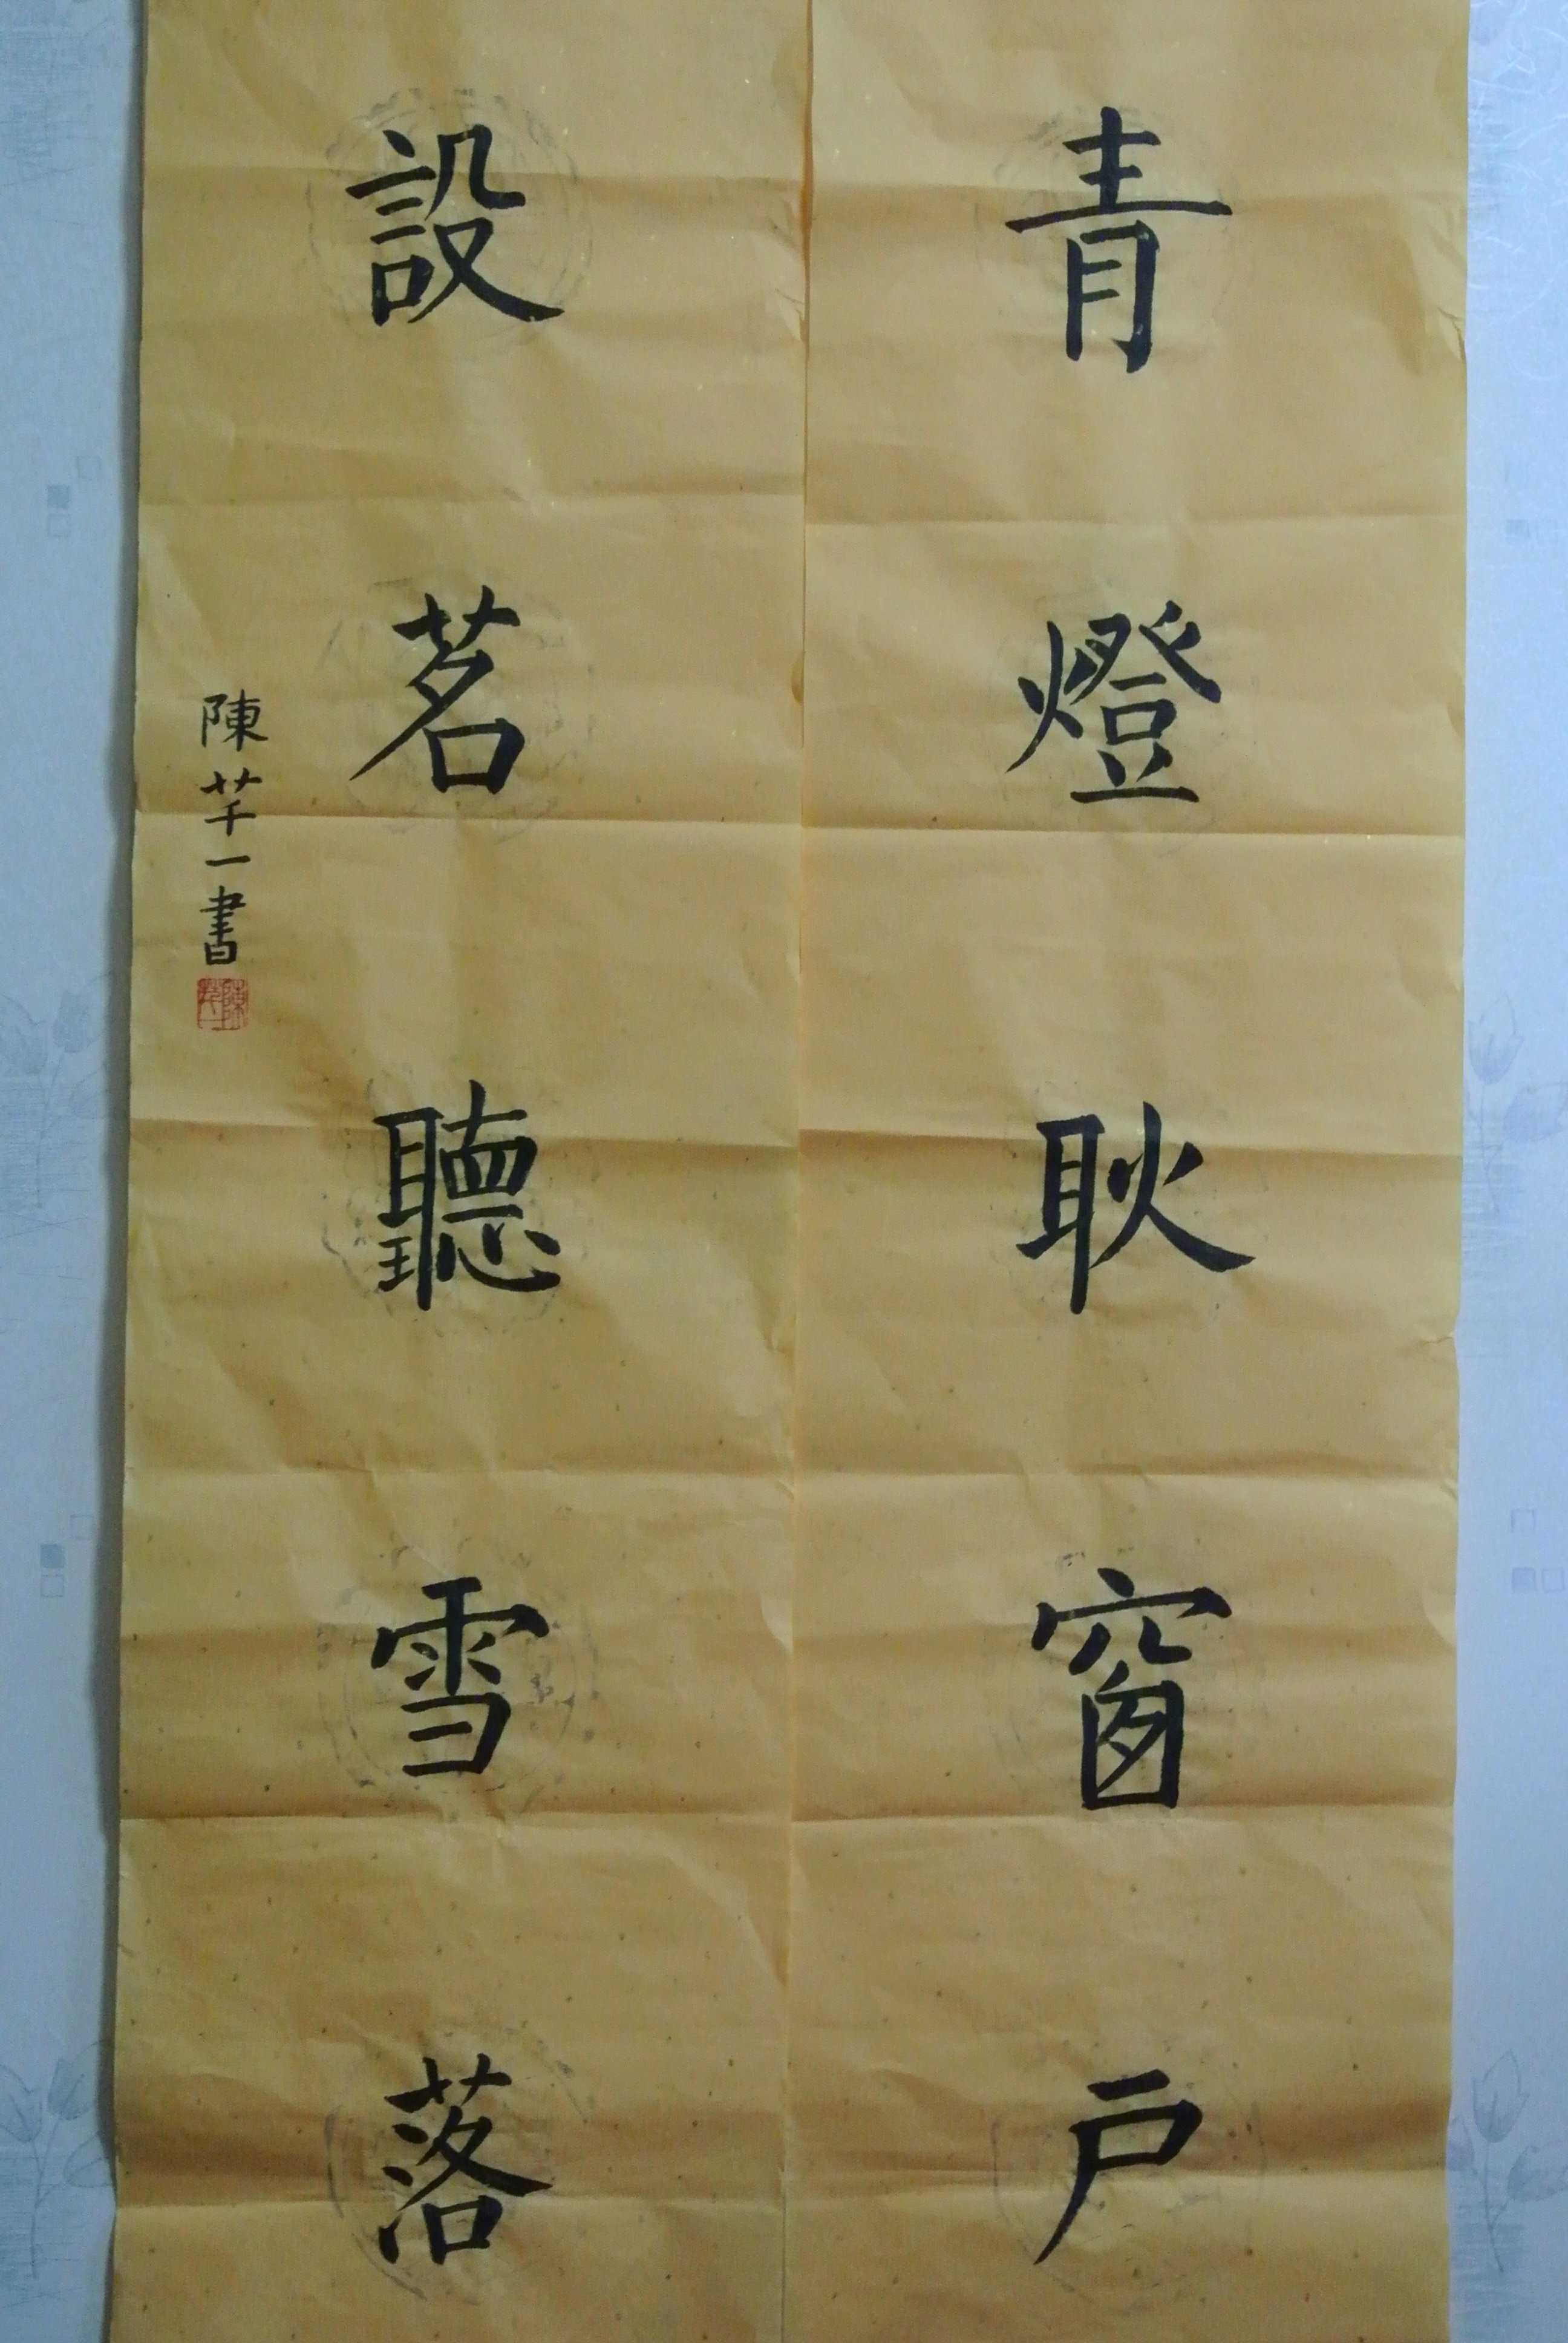 青燈耿窗户
設茗聽雪落
陳芊一書